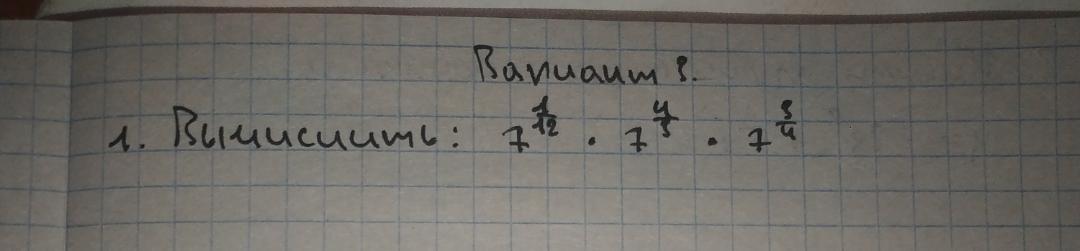 Вариант 3.
1. Вычислить: 7^{1/12} · 7^{4/3} · 7^{3/4}